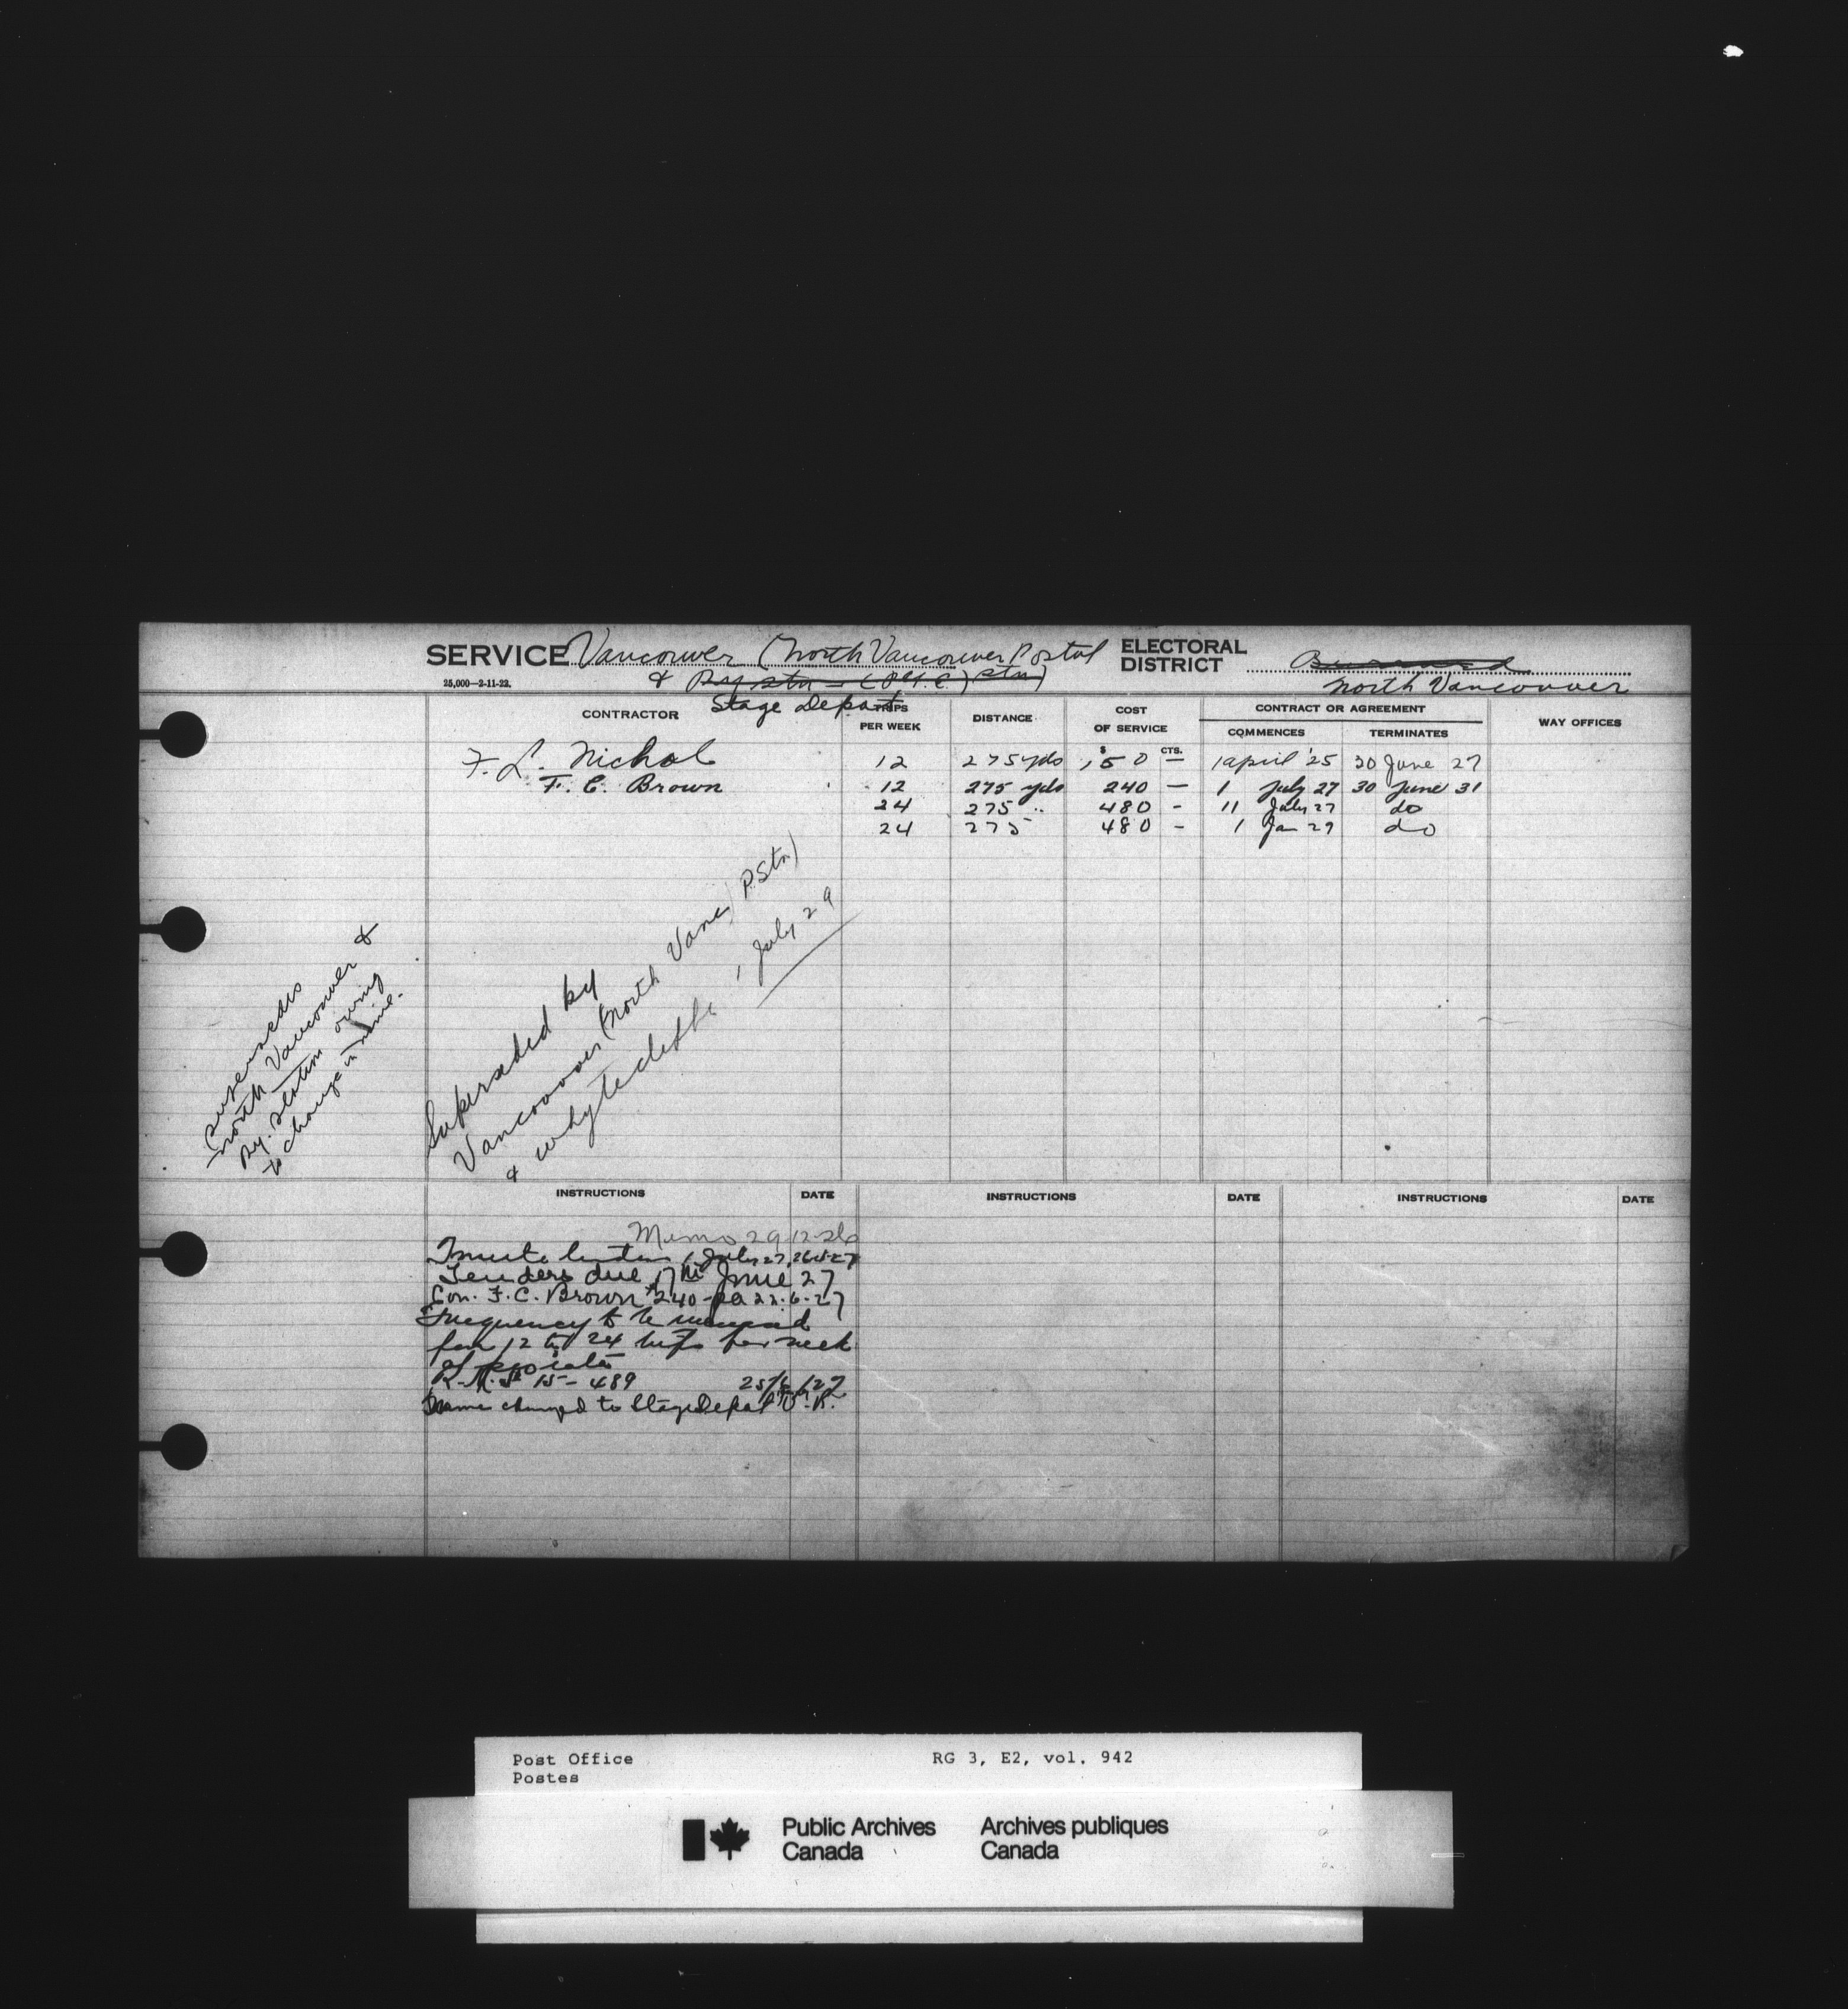 SERVICE Vancouver (North Vancouver Postal
& Ry stn - (P.G.E.) Stn)
Stage Depot
25,000—2-11-22.
ELECTORAL
DISTRICT
Burrard
North Vancouver
CONTRACTOR TRIPS PER WEEK DISTANCE COST OF SERVICE CONTRACT OR AGREEMENT WAY OFFICES
COMMENCES TERMINATES
$ CTS.
F. L. Nichol 12 275 yds 150 — 1 April '25 30 June 27
F. C. Brown 12 275 yds 240 — 1 July 27 30 June 31
24 275 " 480 - 11 July 27 do
24 275 480 - 1 Jan 29 do
Supersedes
North Vancouver &
Ry. Station owing
to change in name.
Superseded by
Vancouver (North Vanc. P.Stn)
& Whytecliffe 1 July 29
INSTRUCTIONS DATE INSTRUCTIONS DATE INSTRUCTIONS DATE
Memo 29-12-26
Invite tenders 1 July 27
Tenders due 17th June 27
Con. F.C. Brown $240 - pa 22-6-27
Frequency to be increased
from 12 to 24 trips per week
R.M.S. 15-489 25/6/27
Name changed to Stage Depot
Post Office RG 3, E2, vol. 942
Postes
Public Archives Archives publiques
Canada Canada